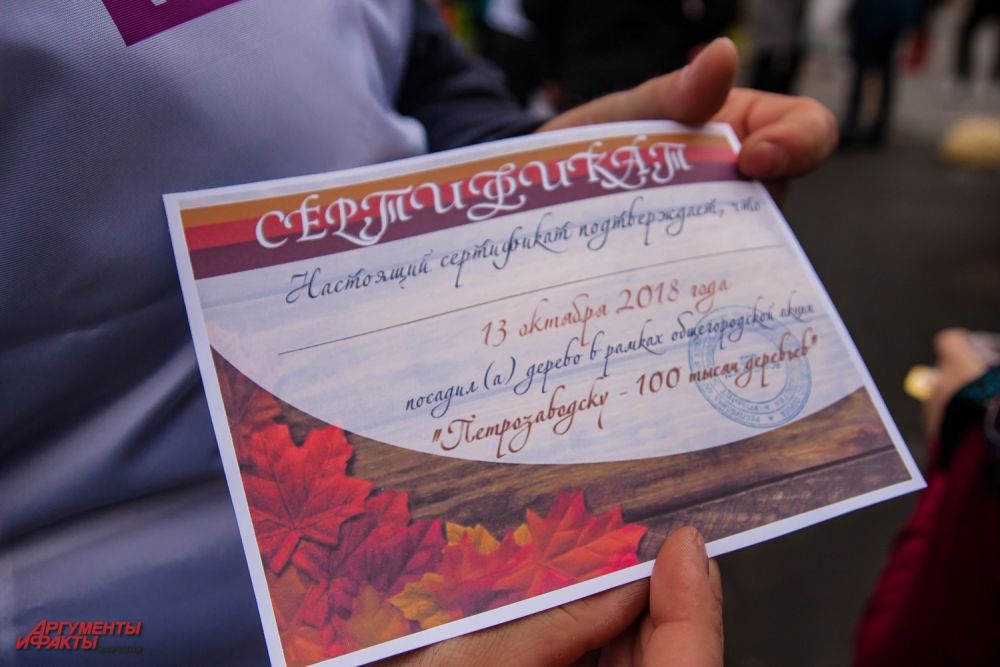 СЕРТИФИКАТ
Настоящий сертификат подтверждает, что
13 октября 2018 года
посадил (а) дерево в рамках общегородской акции
"Петрозаводску - 100 тысяч деревьев"
АРГУМЕНТЫ
И ФАКТЫ